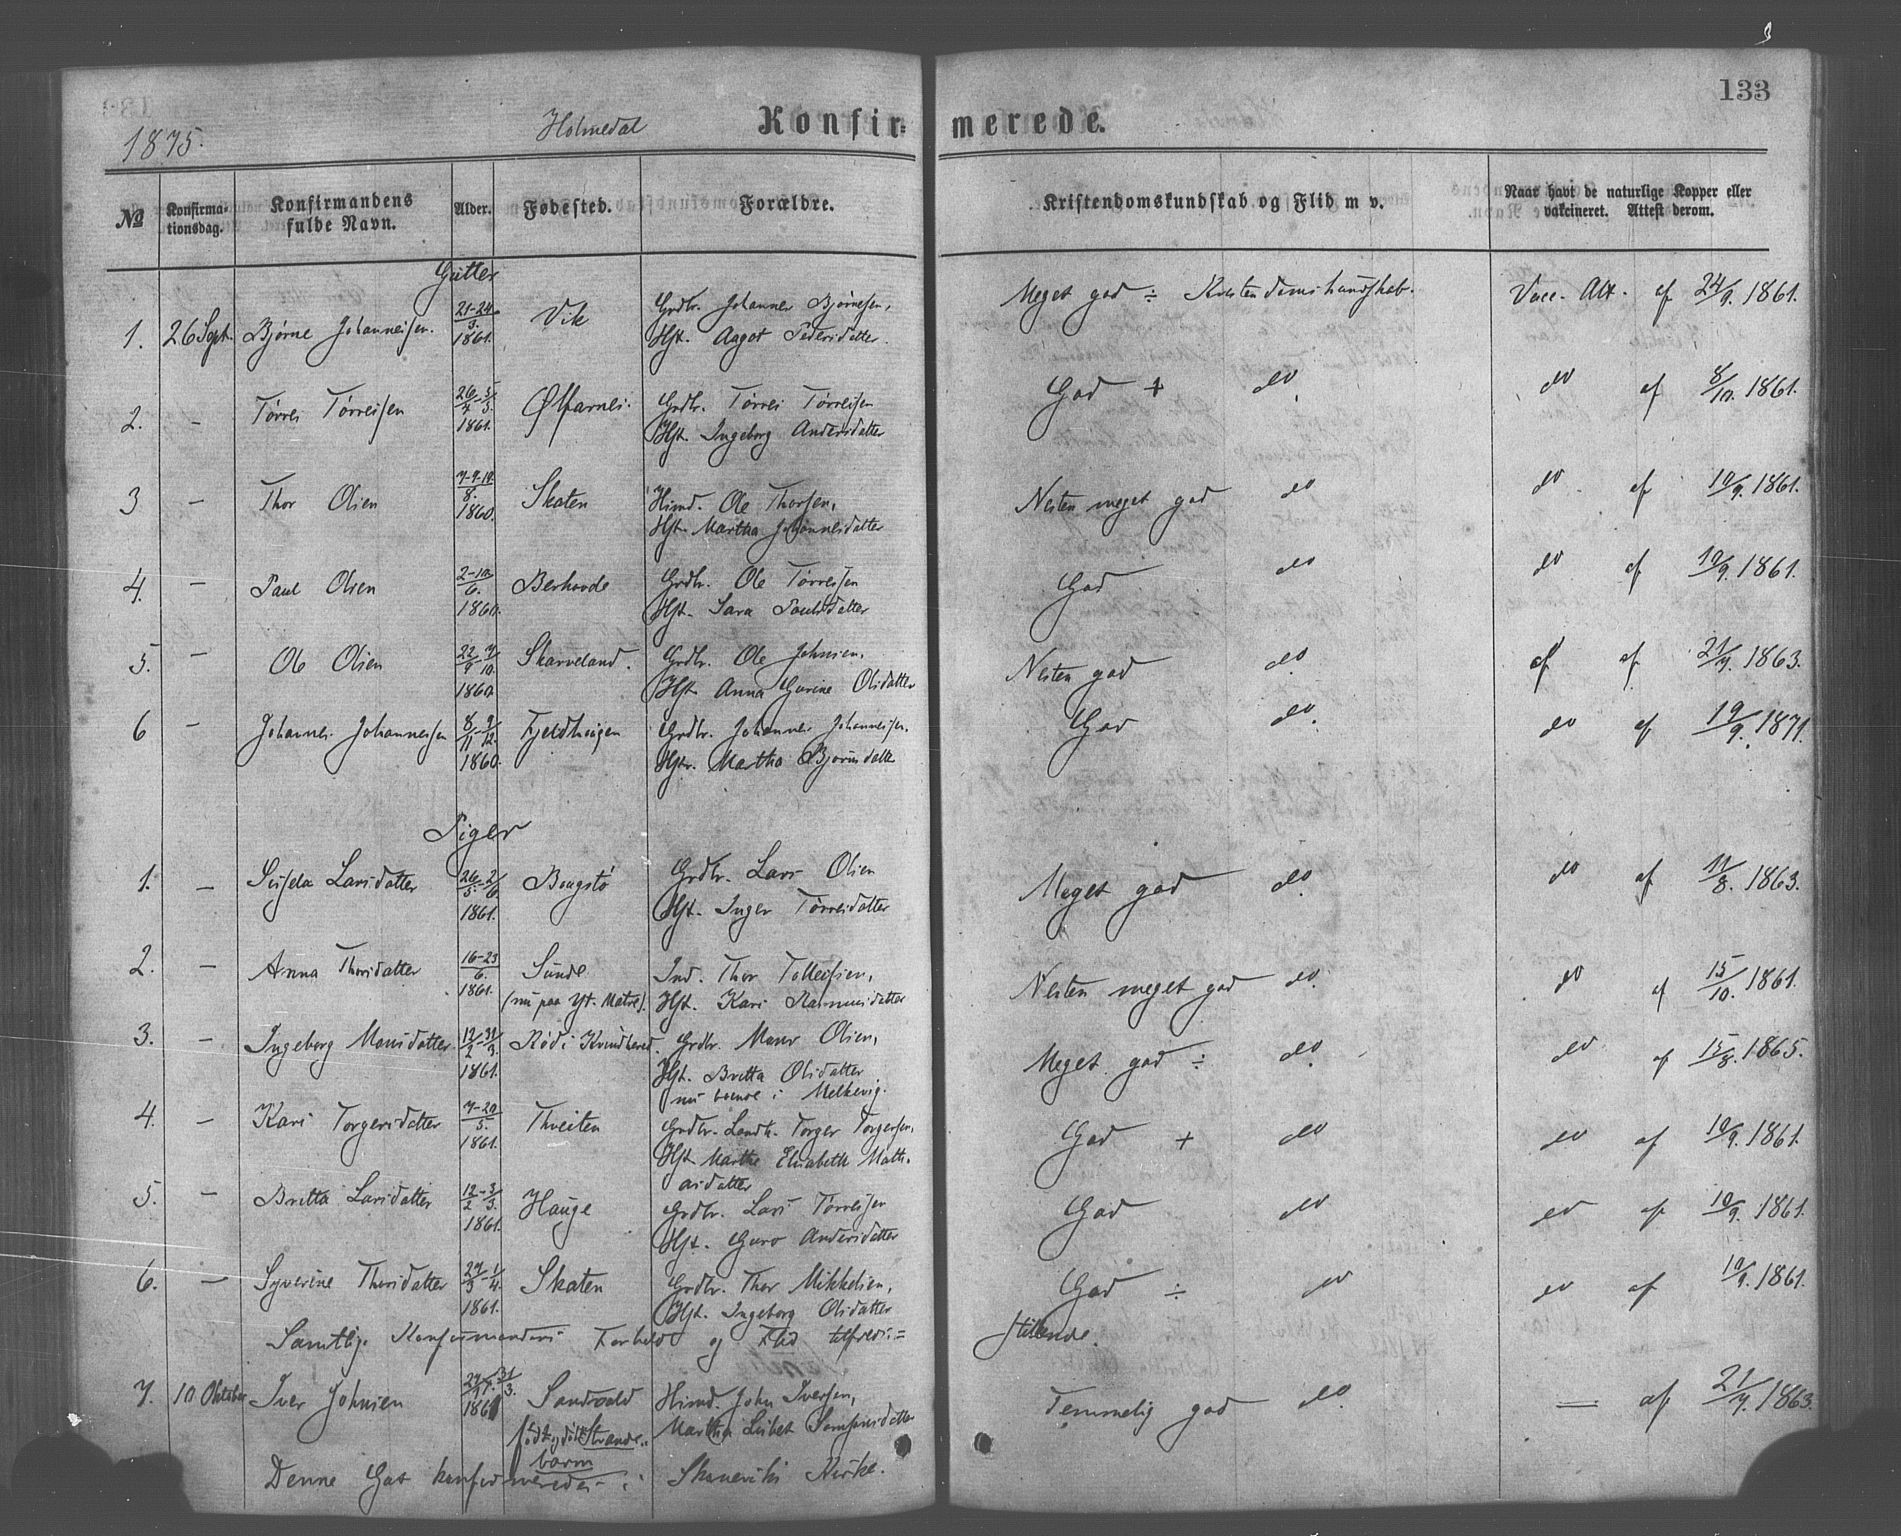 133
1875.
Holmedal
Konfir= merede.
No Konfirma-tionsdag. Konfirmandens fulde Navn. Alder. Fødested. Forældre. Kristendomskundskab og Flid m v. Naar havt de naturlige Kopper eller vakcineret. Attest derom.
Gutter
1. 26 Sept. Bjørne Johannessen. 21-24/3. 1861. Vik Grdbr. Johannes Bjørnesen, Meget god ÷ Kristendomskundskab. Vacc. Att. af 24/9. 1861.
Hst. Aagot Pedersdatter.
2. - Tørres Tørresen 26/4-5/5. 1861. Ølfarnes. Grdbr. Tørres Tørresen God + do do af 8/10. 1861.
Hst. Ingeborg Andersdatter
3 - Thor Olsen 7-9-19/8. 1860. Skaten Husmd. Ole Thorsen, Nesten meget god do do af 10/9. 1861.
Hst. Martha Johannesdatter
4. - Paul Olsen 2-10/6. 1860. Berhovde Grdbr. Ole Tørresen God do do af 10/9. 1861.
Hst. Sara Paulsdatter
5. - Ole Olsen 22/9-7/10. 1860. Skarveland. Grdbr. Ole Johnsen, Nesten god do af af 21/7. 1863.
Hst. Anna Gurine Olsdatter
6 - Johannes Johannessen 8/11-9/12. 1860. Fjeldhaugen Grdbr. Johannes Johannessen, God do. do af 19/9. 1871.
Hst. Martha Bjørnsdatter
Piger
1. - Larsdatter 26/5-2/6. 1861. Bongstø Grdbr. Lars Olsen Meget god do. do af 11/8. 1863.
Hst. Inger Tørresdatter
2. - Anna Thorsdatter 16-23/6. 1861. Sunde Ind. Thor Tollefsen, Nesten meget god do. do af 15/10. 1861.
(nu paa Yt. Matre). Hst. Kari Rasmusdatter
3. - Ingeborg Monsdatter 12/2-31/3. 1861. Rød i Kvindhered. Grdbr. Mons Olsen, Meget god ÷ do do af 15/8. 1865.
Hst. Britta Olsdatter
nu boende i Melkevig.
4. - Kari Torgersdatter 7-20/5. 1861. Thveiten Grdbr. Landh. Torger Torgersen, God + do do af 10/9. 1861.
Hst. Marthe Elisabeth Math-
iasdatter
5. - Britta Larsdatter 12/2-3/3. 1861. Hauge Grdbr. Lars Tørresen God do do af 10/9. 1861.
Hst. Guro Andersdatter
6. - Syverine Thorsdatter 27/3-1/4. 1861. Skaten Grdbr. Thor Mikkelsen, God ÷ do do af 10/9. 1861.
Hst. Ingeborg Olsdatter
Samtlige Konfirmanders Forhold og Flid tilfreds:= stillende.
7. 10 Oktober Iver Johnsen 31/3. 1861 Sandvold Husmd. John Iversen, Temmelig god do. = af 21/7. 1863.
født og døbt Strande- Martha Lisbet Samsonsdatter
barm
Denne Gut konfirmeredes i Skaneviks Kirke.